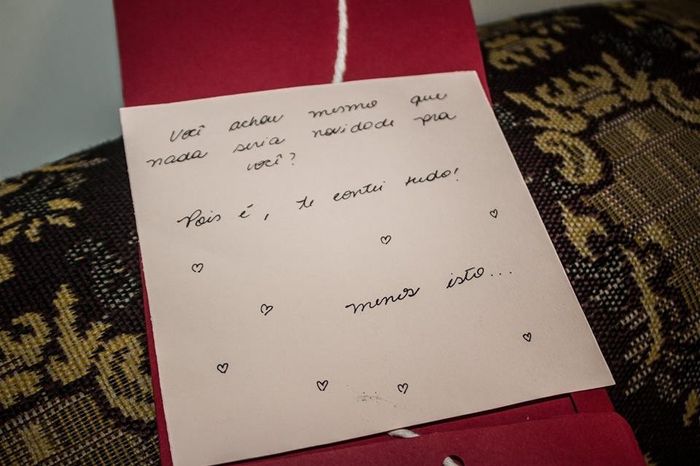 Você achou mesmo que
nada seria novidade pra
você?
Pois é, te contei tudo!
menos isto...